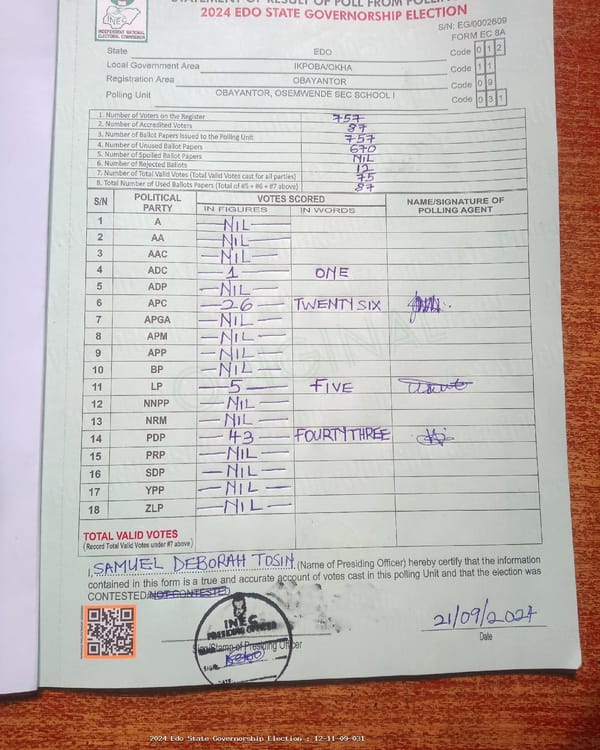 INEC
INDEPENDENT NATIONAL
ELECTORAL COMMISSION
STATEMENT OF RESULT OF POLL FROM POLLING
2024 EDO STATE GOVERNORSHIP ELECTION
S/N; EG/0002609
FORM EC 8A
State EDO Code 0 1 2
Local Government Area IKPOBA/OKHA Code 1 1
Registration Area OBAYANTOR Code 0 9
Polling Unit OBAYANTOR, OSEMWENDE SEC SCHOOL I Code 0 3 1
1. Number of Voters on the Register 757
2. Number of Accredited Voters 87
3. Number of Ballot Papers Issued to the Polling Unit 757
4. Number of Unused Ballot Papers 670
5. Number of Spoiled Ballot Papers NIL
6. Number of Rejected Ballots 12
7. Number of Total Valid Votes (Total Valid Votes cast for all parties) 75
8. Total Number of Used Ballots Papers (Total of #5 + #6 + #7 above) 87
S/N POLITICAL PARTY VOTES SCORED NAME/SIGNATURE OF POLLING AGENT
IN FIGURES IN WORDS
1 A NIL
2 AA NIL
3 AAC NIL
4 ADC 1 ONE
5 ADP NIL
6 APC 26 TWENTY SIX
7 APGA NIL
8 APM NIL
9 APP NIL
10 BP NIL
11 LP 5 FIVE
12 NNPP NIL
13 NRM NIL
14 PDP 43 FOURTY THREE
15 PRP NIL
16 SDP NIL
17 YPP NIL
18 ZLP NIL
TOTAL VALID VOTES
(Record Total Valid Votes under #7 above)
I, SAMUEL DEBORAH TOSIN (Name of Presiding Officer) hereby certify that the information
contained in this form is a true and accurate account of votes cast in this polling Unit and that the election was
CONTESTED/NOT CONTESTED
INEC
PRESIDING OFFICER
Sign/Stamp of Presiding Officer
SIGN:
DATE:
21/09/2024
Date
2024 Edo State Governorship Election : 12-11-09-031